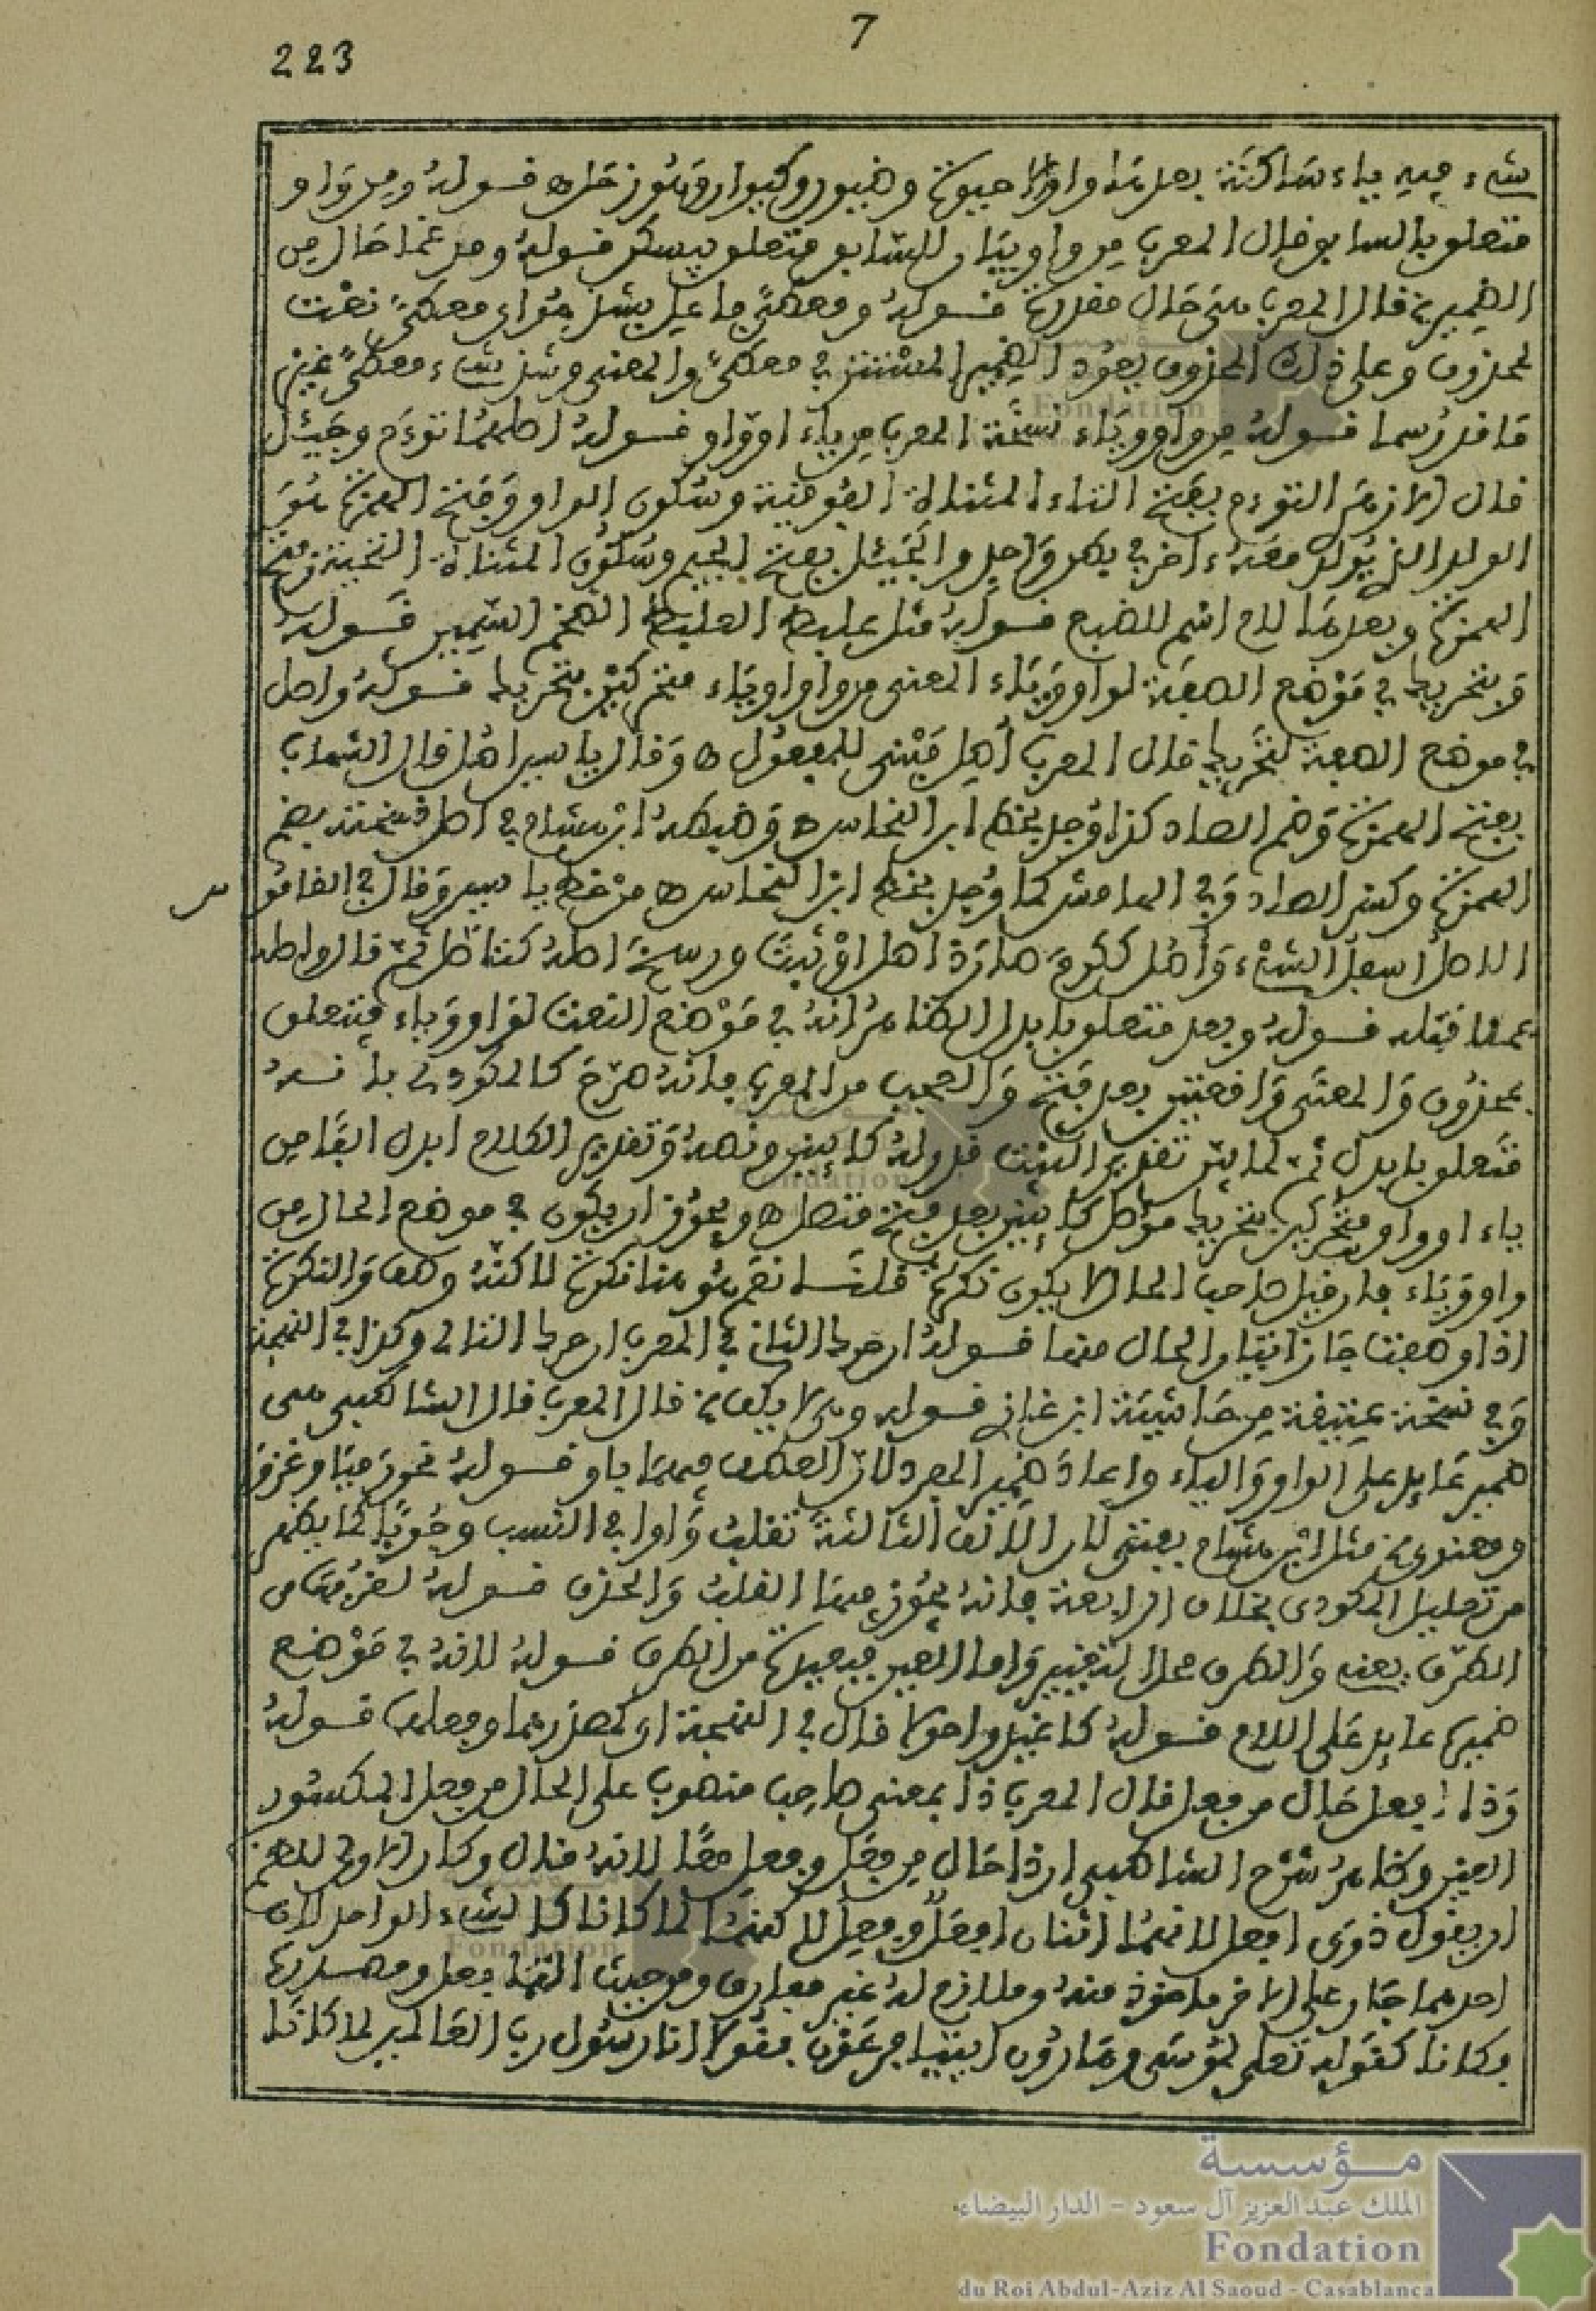 7
223
شيء فيه ياء ساكنة بعدها واو إلا حيوة وضيون وكيوان
متعلق بالسابق قال المعرب من واو ويا والسابق متعلق بيسكن قوله ومدغما حال من
الضمير قال المعرب هي حال مقدرة قوله ومعطى فاعل بشذ هو أي معطى نعت
لمحذوف وعلى ذلك المحذوف يعود الضمير المستتر في معطى والمعنى وشذ شيء معطى غير
ما قد رسما قوله من واو وياء نسخة المعرب من ياء او واو قوله اصلهما توءم وجيئل
قال الازهر التوءم بفتح التاء المثناة الفوقية وسكون الواو وفتح الهمزة هو
الولد الذي يولد معه ءاخر في بطن واحد والجيئل بفتح الجيم وسكون المثناة التحتية وفتح
الهمزة وبعدها لام اسم للضبع قوله مثل عليط العليط الضخم السمين قوله
وبتحريك في موضع الصفة لواو وياء المعنى من واو او ياء متحركين بتحريك قوله واصل
في موضع الصفة لتحريك قال المعرب أصل مبني للمفعول ه وقال ياسين اصل قال الشهاب
بفتح الهمزة وضم الصاد كذا وجد بخط ابن النحاس ه وضبطه ابن هشام في اصل نسخته بضم
الهمزة وكسر الصاد وفي الهامش كما وجد بخط ابن النحاس ه من خط ياسين وقال في القامو س
الاصل اسفل الشيء وأصل ككرم صار ذا اصل او ثبت ورسخ اصله كتاصل ثم قال واصله
علما قتله قوله وبعد متعلق بابدل الظاهر انه في موضع النعت لواو وياء فيتعلق
بمحذوف والمعنى واقعتين بعد فتح والعجب من المعرب فانه صرح كالمكودي بانه
متعلق بابدل ثم لما بين تقدير البيت قدره كائنين ونصه وتقدير الكلام ابدل الفا من
ياء او واو متحركين بتحريك مؤصل كائنين بعد فتح متصل ه ويجوز ان يكون في موضع الحال من
واو وياء فان قيل صاحب الحال لا يكون نكرة قلنا نعم هو هنا نكرة لاكنه وصف والنكرة
اذا وصفت جاز اتيان الحال منها قوله ان حرك الثاني في المعرب ان حرك التالي وكذا في النتيجة
وفي نسخة عتيقة من حاشية ابن غازي قوله وهي لا يكف قال المعرب قال الشاطبي هي
ضمير عايد على الواو والياء واعاد ضمير المفرد لان العطف فيهما باو قوله نحو رميا وغزوا
ومعنوي مثل ابن هشام بفتى لان الالف الثالثة تقلب واوا في النسب وجوبا كما يظهر
من تعليل المكودي بخلاف الرابعة فانه يجوز فيها القلب والحذف قوله لقربها من
الطرف يعني والطرف محل التغيير واما العين فبعيدة من الطرف قوله لانه في موضع
ضميرة عايد على اللام قوله كاغيد واحولا قال في النتيجة اي كمصدرهما وفعلهما قوله
وذا افعل حال من فعل قال المعرب ذا بمعنى صاحب منصوب على الحال من فعل المكسور
العين وظاهر شرح الشاطبي ان ذا حال من فعل وفعل معا لانه قال وكان الاولى للناظم
ان يقول ذوي افعل لانهما اثنان افعل وفعل لاكنهما لما كانا كالشيء الواحد لان
احدهما جار على الاخر ماخوذ منه وملازم له غير مفارق ومن حيث الفعل ومصدره
فكانا كقوله تعلى لموسى وهارون ايتيا فرعون فقولا انا رسول رب العالمين لما كانا
مـؤسسة
الملك عبد العزيز آل سعود - الدار البيضاء
Fondation
du Roi Abdul-Aziz Al Saoud - Casablanca